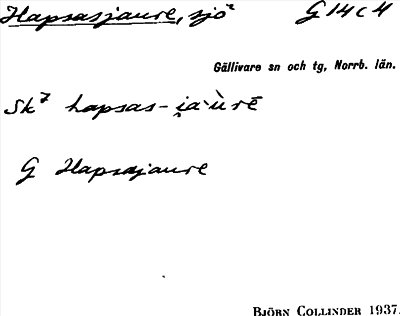 Hapsasjaure, sjö² G 14 c 4
Gällivare sn och tg, Norrb. län.
Sk⁷ hapsas-i̯a·ùrē
G Hapsajaure
BJÖRN COLLINDER 1937.